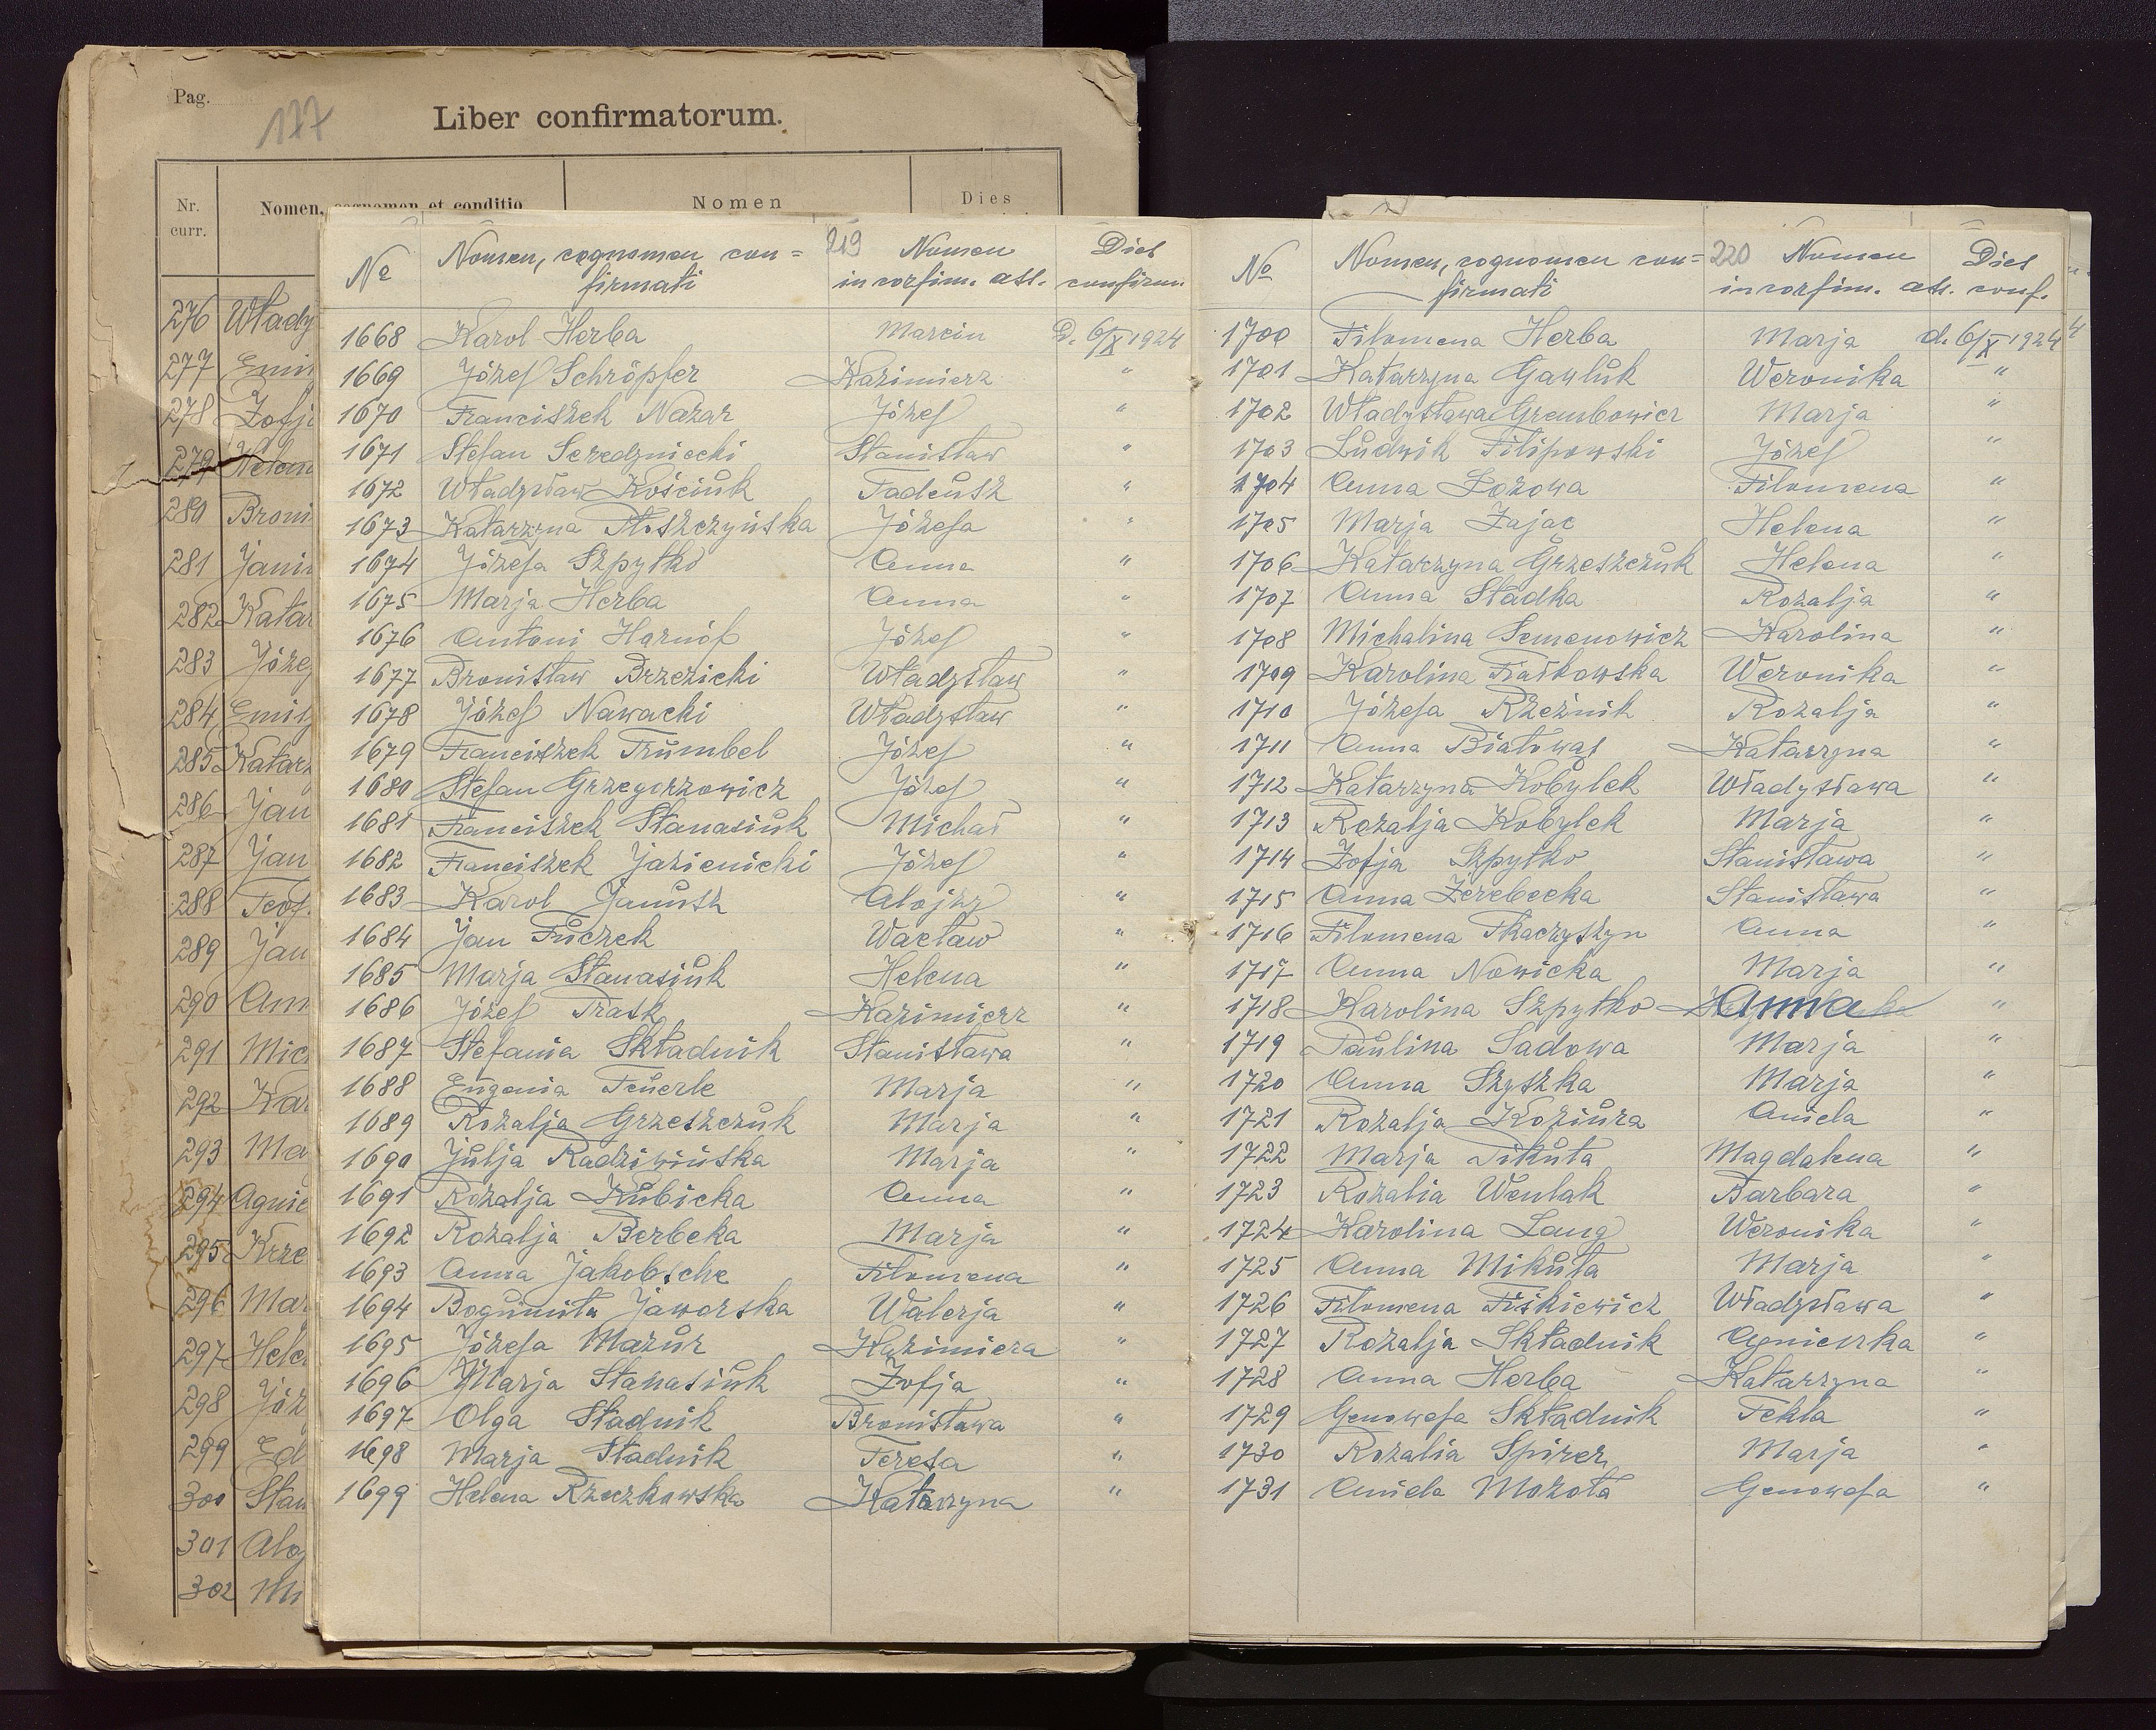 Pag.
177
Liber confirmatorum.
Nr. curr.
Nomen, cognomen et conditio
Nomen
Dies
276 Włady
277 Emil
278 Zofj
279 Helen
280 Broni
281 Jani
282 Katar
283 Józe
284 Emil
285 Katarz
286 Jan
287 Jan
288 Teof
289 Jan
290 Ann
291 Mic
292 Kar
293 Ma
294 Agnie
295 Krze
296 Mar
297 Hele
298 Józ
299 Ed
300 Stan
301 Aloj
302 Mi
219
№ Nomen, cognomen con= Nomen Dies
firmati in confirm. ass. confirm.
1668 Karol Herba Marcin D. 6/X 1924
1669 Józef Schröpfer Kazimierz "
1670 Franciszek Nazar Józef "
1671 Stefan Seredzniecki Stanisław "
1672 Władysław Kościuk Tadeusz "
1673 Katarzyna Płoszczyńska Józefa "
1674 Józefa Szpytko Anna "
1675 Marja Herba Anna "
1676 Antoni Harnóf Józef "
1677 Bronisław Brzezicki Władysław "
1678 Józef Nawacki Władysław "
1679 Franciszek Trumbel Józef "
1680 Stefan Grzegorzowicz Józef "
1681 Franciszek Stanasiuk Michał "
1682 Franciszek Jazienicki Józef "
1683 Karol Janusz Alojzy "
1684 Jan Fuczek Wacław "
1685 Marja Stanasiuk Helena "
1686 Józef Trask Kazimierz "
1687 Stefania Składnik Stanisława "
1688 Eugenia Feuerle Marja "
1689 Rozalja Grzeszczuk Marja "
1690 Julja Radziwińska Marja "
1691 Rozalja Kubicka Anna "
1692 Rozalja Berbeka Marja "
1693 Anna Jakobsche Filomena "
1694 Bogumiła Jaworska Walerja "
1695 Józefa Mazur Kazimiera "
1696 Marja Stanasiuk Zofja "
1697 Olga Stadnik Bronisława "
1698 Marja Stadnik Teresa "
1699 Helena Rzeczkowska Katarzyna "
220
№ Nomen, cognomen con= Nomen Dies
firmati in confirm. ass. conf.
1700 Filomena Herba Marja d. 6/X 1924
1701 Katarzyna Gawluk Weronika "
1702 Władysława Grembowicz Marja "
1703 Ludwik Filipowski Józef "
1704 Anna Łozowa Filomena "
1705 Marja Zając Helena "
1706 Katarzyna Grzeszczuk Helena "
1707 Anna Stadka Rozalja "
1708 Michalina Semenowicz Karolina "
1709 Karolina Fiałkowska Weronika "
1710 Józefa Rzeźnik Rozalja "
1711 Anna Białowąs Katarzyna "
1712 Katarzyna Kobylek Władysława "
1713 Rozalja Kobylek Marja "
1714 Zofja Szpytko Stanisława "
1715 Anna Żerebecka Stanisława "
1716 Filomena Tkaczyszyn Anna "
1717 Anna Nowicka Marja "
1718 Karolina Szpytko Anna "
1719 Paulina Sadowa Marja "
1720 Anna Szyszka Marja "
1721 Rozalja Koziura Aniela "
1722 Marja Pikuta Magdalena "
1723 Rozalia Wenlak Barbara "
1724 Karolina Lang Weronika "
1725 Anna Mikuta Marja "
1726 Filomena Fiśkiewicz Władysława "
1727 Rozalja Składnik Agnieszka "
1728 Anna Herba Katarzyna "
1729 Genowefa Składnik Tekla "
1730 Rozalia Spirer Marja "
1731 Aniela Mozota Genowefa "